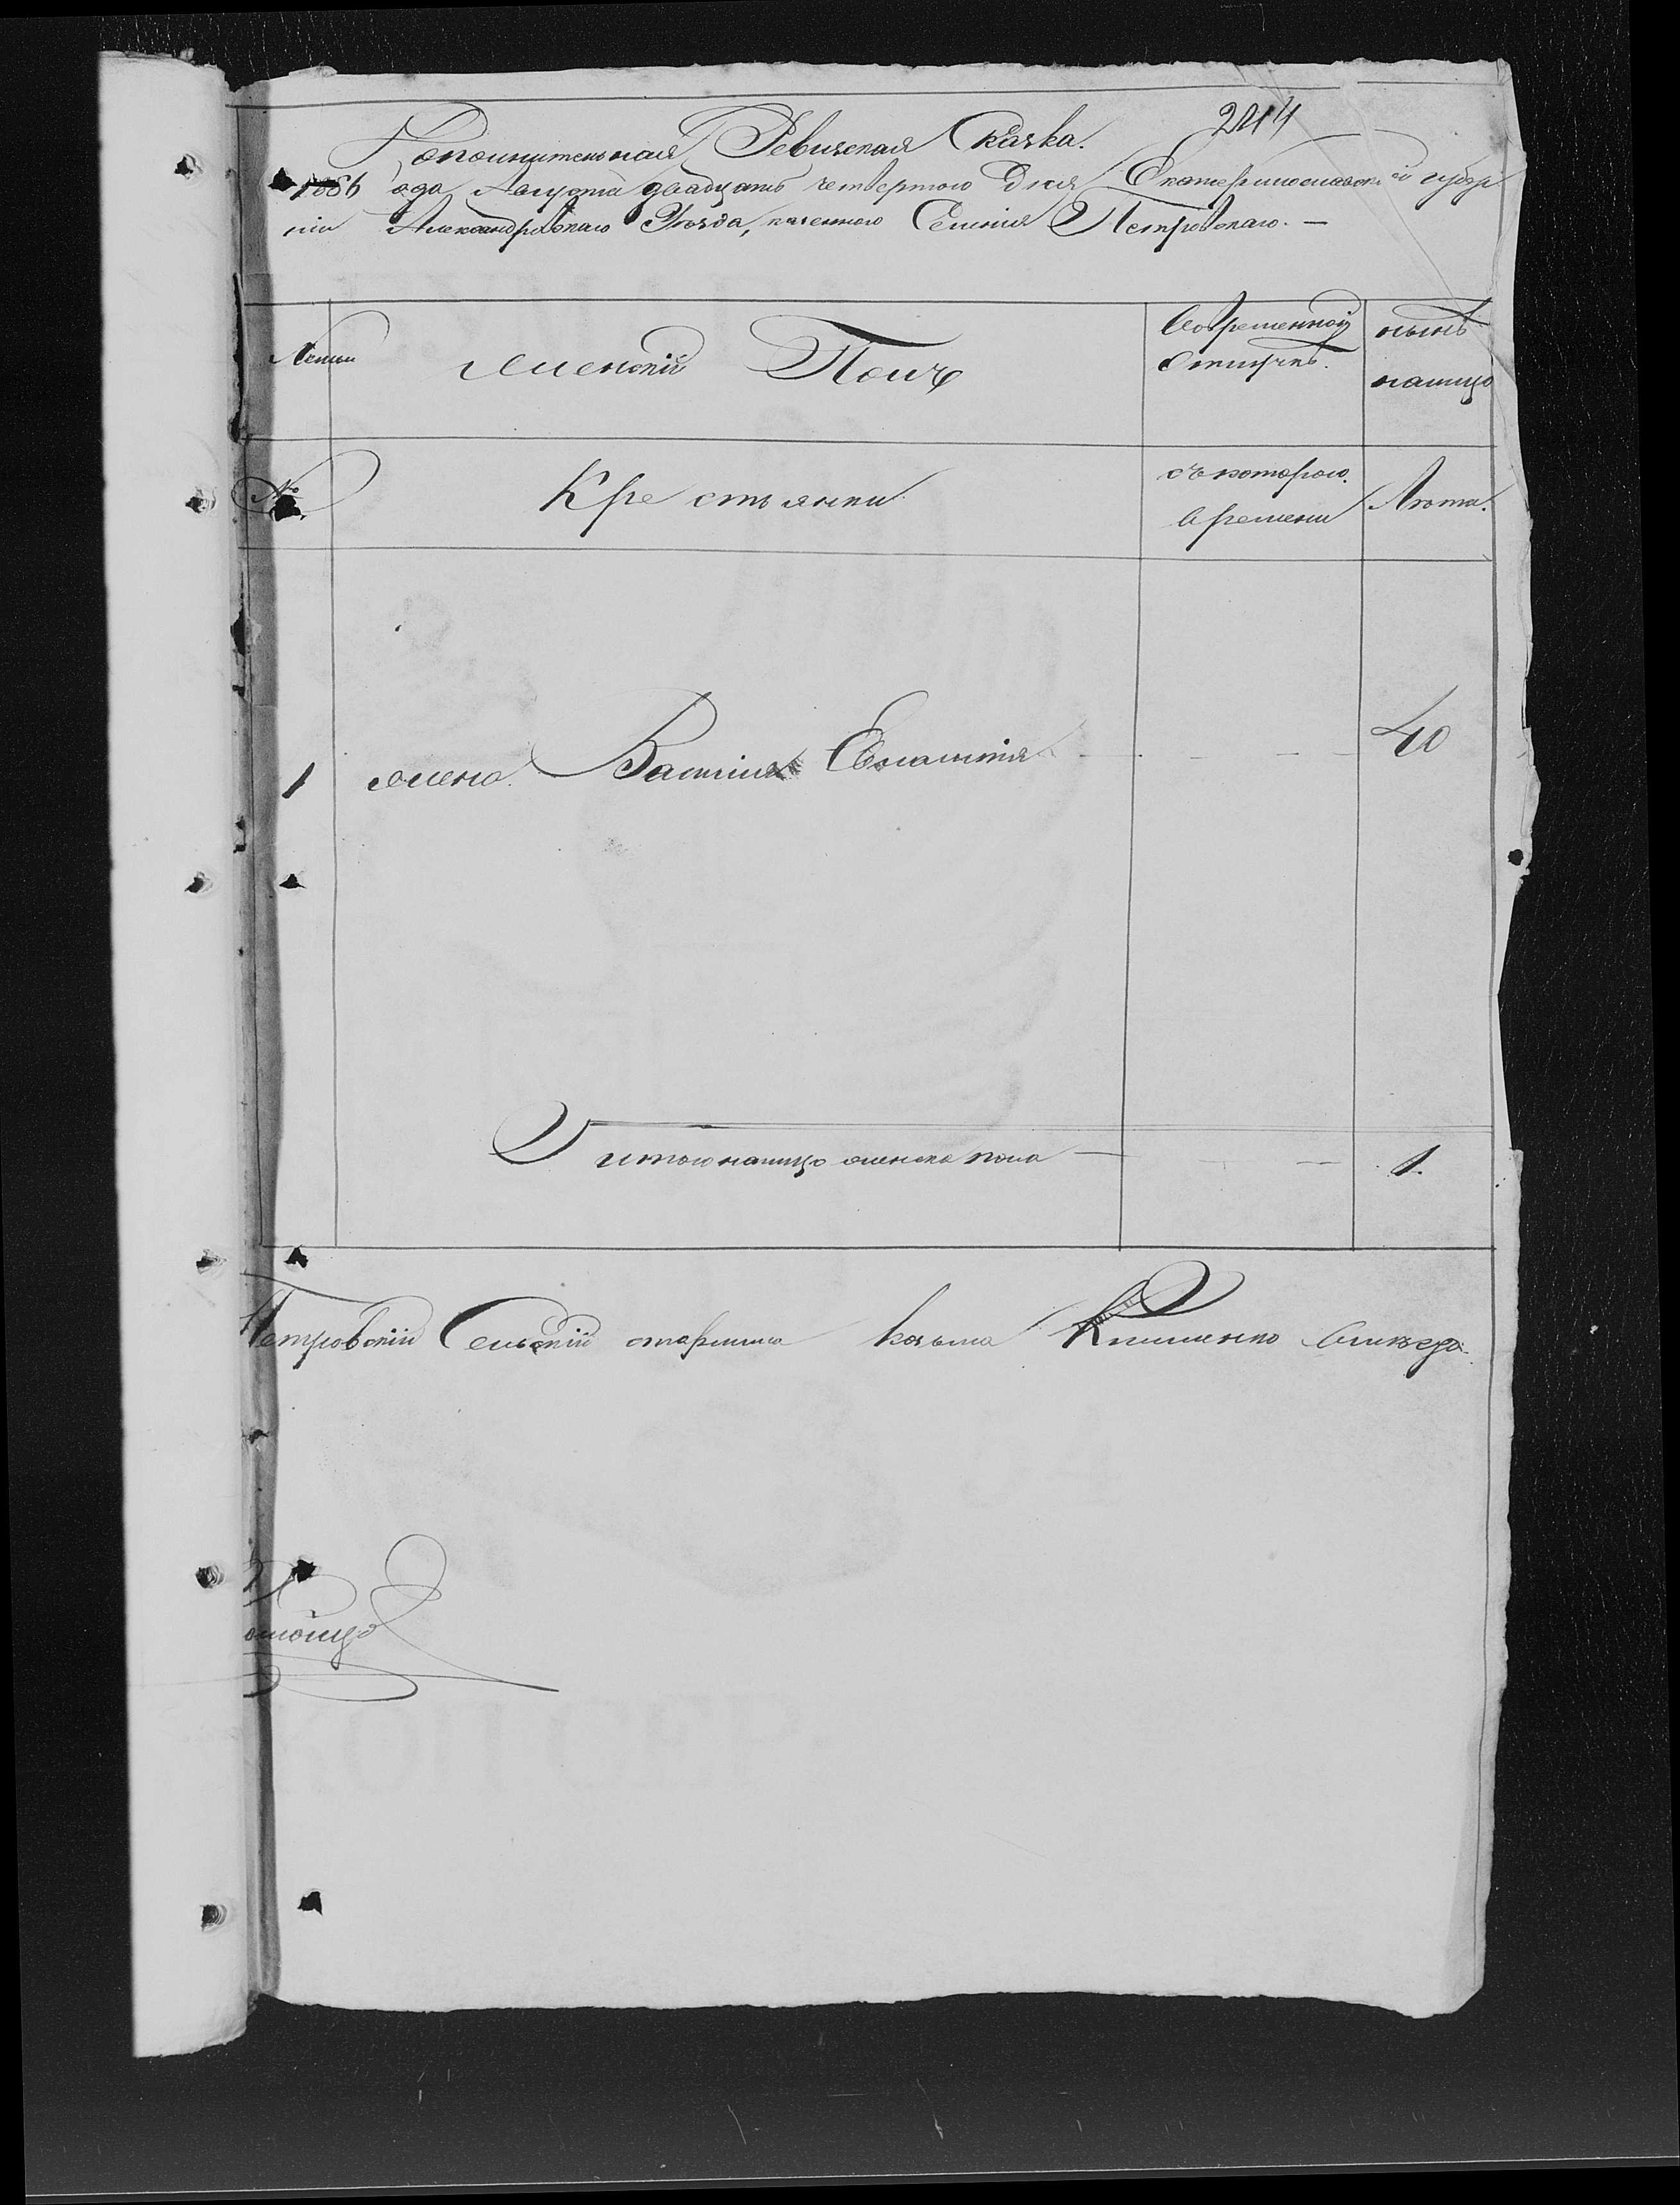 2214
Дополнительная Ревизская Сказка.
года Августа двадцать четвертого Дня Екатеринославской губер
нiи Александровскаго Уезда, казеннаго Селенiя Петровскаго. —
женскiй Полъ
Вовременной
Отлучкѣ.
нынѣ
налицо
№
Крестьянки
съ котораго
времени
Лѣта.
1 жена Евгенiя 40
итого налицо женска пола — — 1.
Петровскiй Сельскiй старшина Козьма Клименко